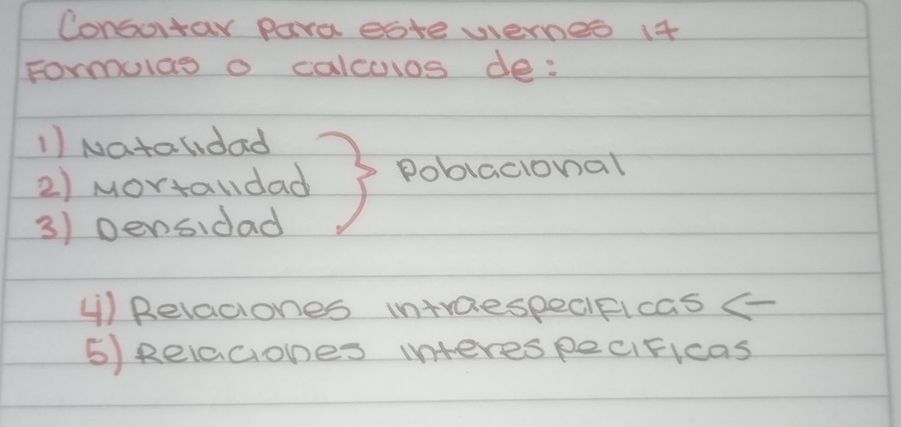 Consultar para este viernes 17
Formulas o calculos de:
1) Natalidad
2) Mortalidad
3) Densidad
} Poblacional
4) Relaciones intraespecificas ←
5) Relaciones interespecificas